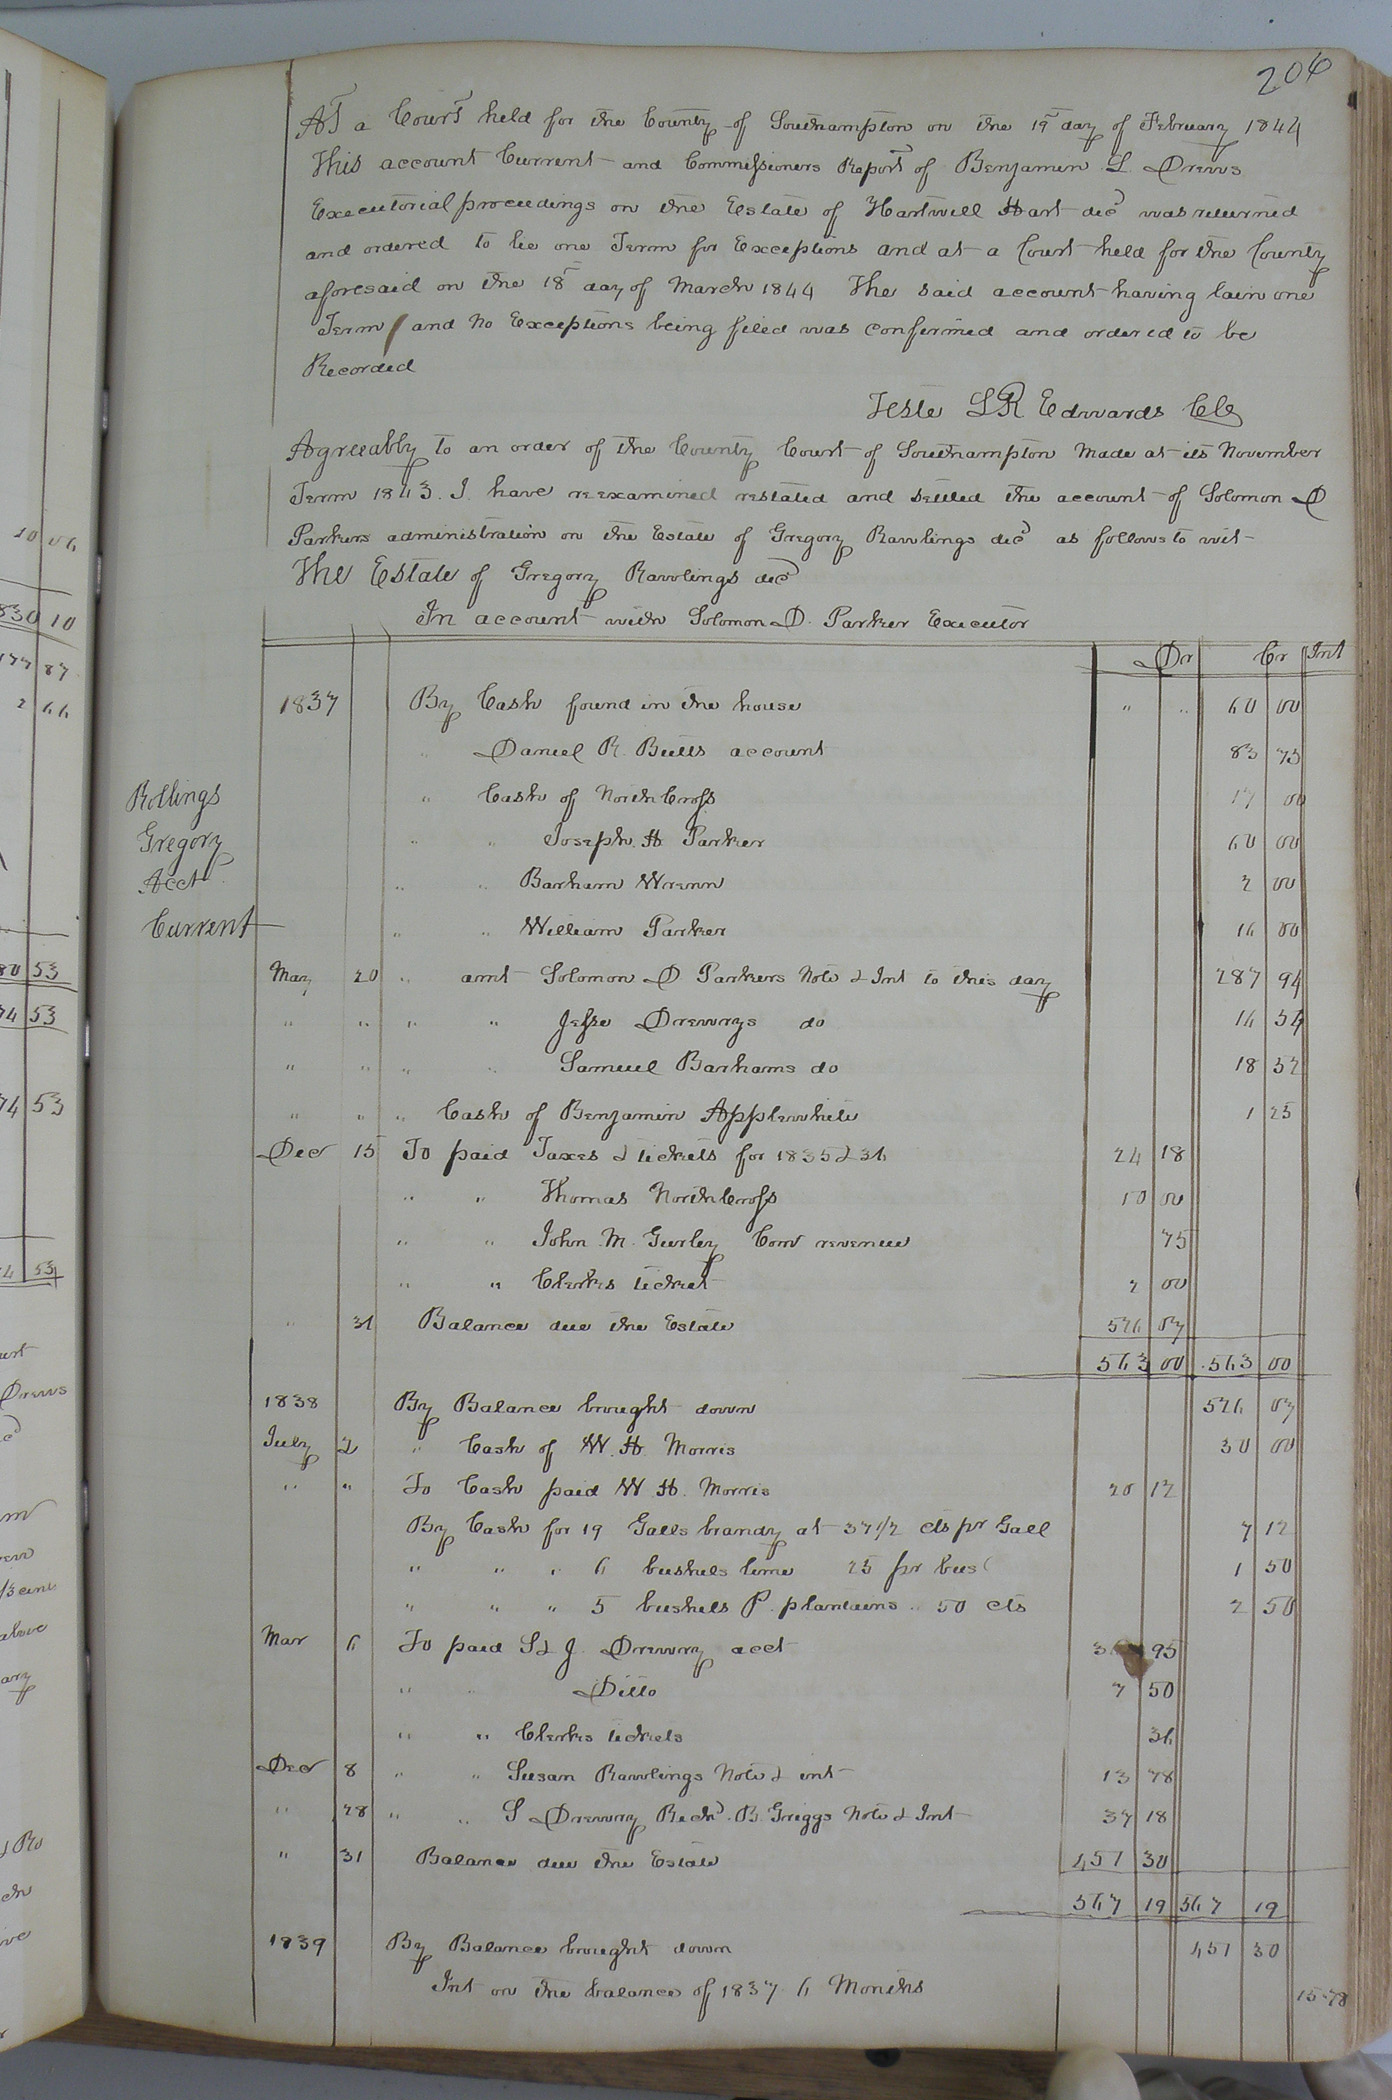 206
At a Court held for the County of Southampton on the 19th day of February 1844
This account Current and Commissioners Report of Benjamin L Drews
Executorial proceedings on the Estate of Hartwill Hart decd was returned
and ordered to lie one Term for Exceptions and at a Court held for the County
aforesaid on the 18th day of March 1844 The said account having lain one
Term and no Exceptions being filed was confirmed and ordered to be
Recorded
Teste L R Edwards Clk
Agreeably to an order of the County Court of Southampton Made at its November
Term 1843. I have reexamined restated and settled the account of Solomon D
Parkers administration on the Estate of Gregory Rawlings decd as follows to wit
The Estate of Gregory Rawlings decd
In account with Solomon D. Parker Executor
Dr Cr Int
1837 By Cash found in the house " " 60 00
" Daniel R. Butts account 83 75
Rollings
" Cash of North Cross 17 00
Gregory
" " Joseph H Parker 60 00
Acct
" " Barham Wrenn 2 00
Current
" " William Parker 16 00
May 20 " amt Solomon D Parkers Note & Int to this day 287 94
" " " " Jesse Drewrys do 16 54
" " " " Samuel Barhams do 18 52
" " " Cash of Benjamin Applewhite 1 25
Decr 15 To paid Taxes & tickets for 1835 & 36 24 18
" " Thomas North Cross 10 00
" " John M. Gurley Comr revenue 75
" " Clerks ticket 2 00
" 31 Balance due the Estate 526 07
563 00 563 00
1838 By Balance brought down 526 07
July 2 " Cash of W. H. Morris 30 00
" " To Cash paid W H. Morris 20 12
By Cash for 19 Galls brandy at 37 1/2 cts pr Gall 7 12
" " " 6 bushels lime 25 pr bus 1 50
" " " 5 bushels P. plantains " 50 cts 2 50
Mar 6 To paid S & J. Drewry acct 95
" " Ditto 7 50
" " Clerks tickets 36
Decr 8 " " Susan Rawlings Note & int 13 78
" 28 " " S Drewry Rechd. B. Griggs Note & Int 37 18
" 31 Balance due the Estate 451 30
567 19 567 19
1839 By Balance brought down 451 30
Int on the balance of 1837 6 Months 15.78